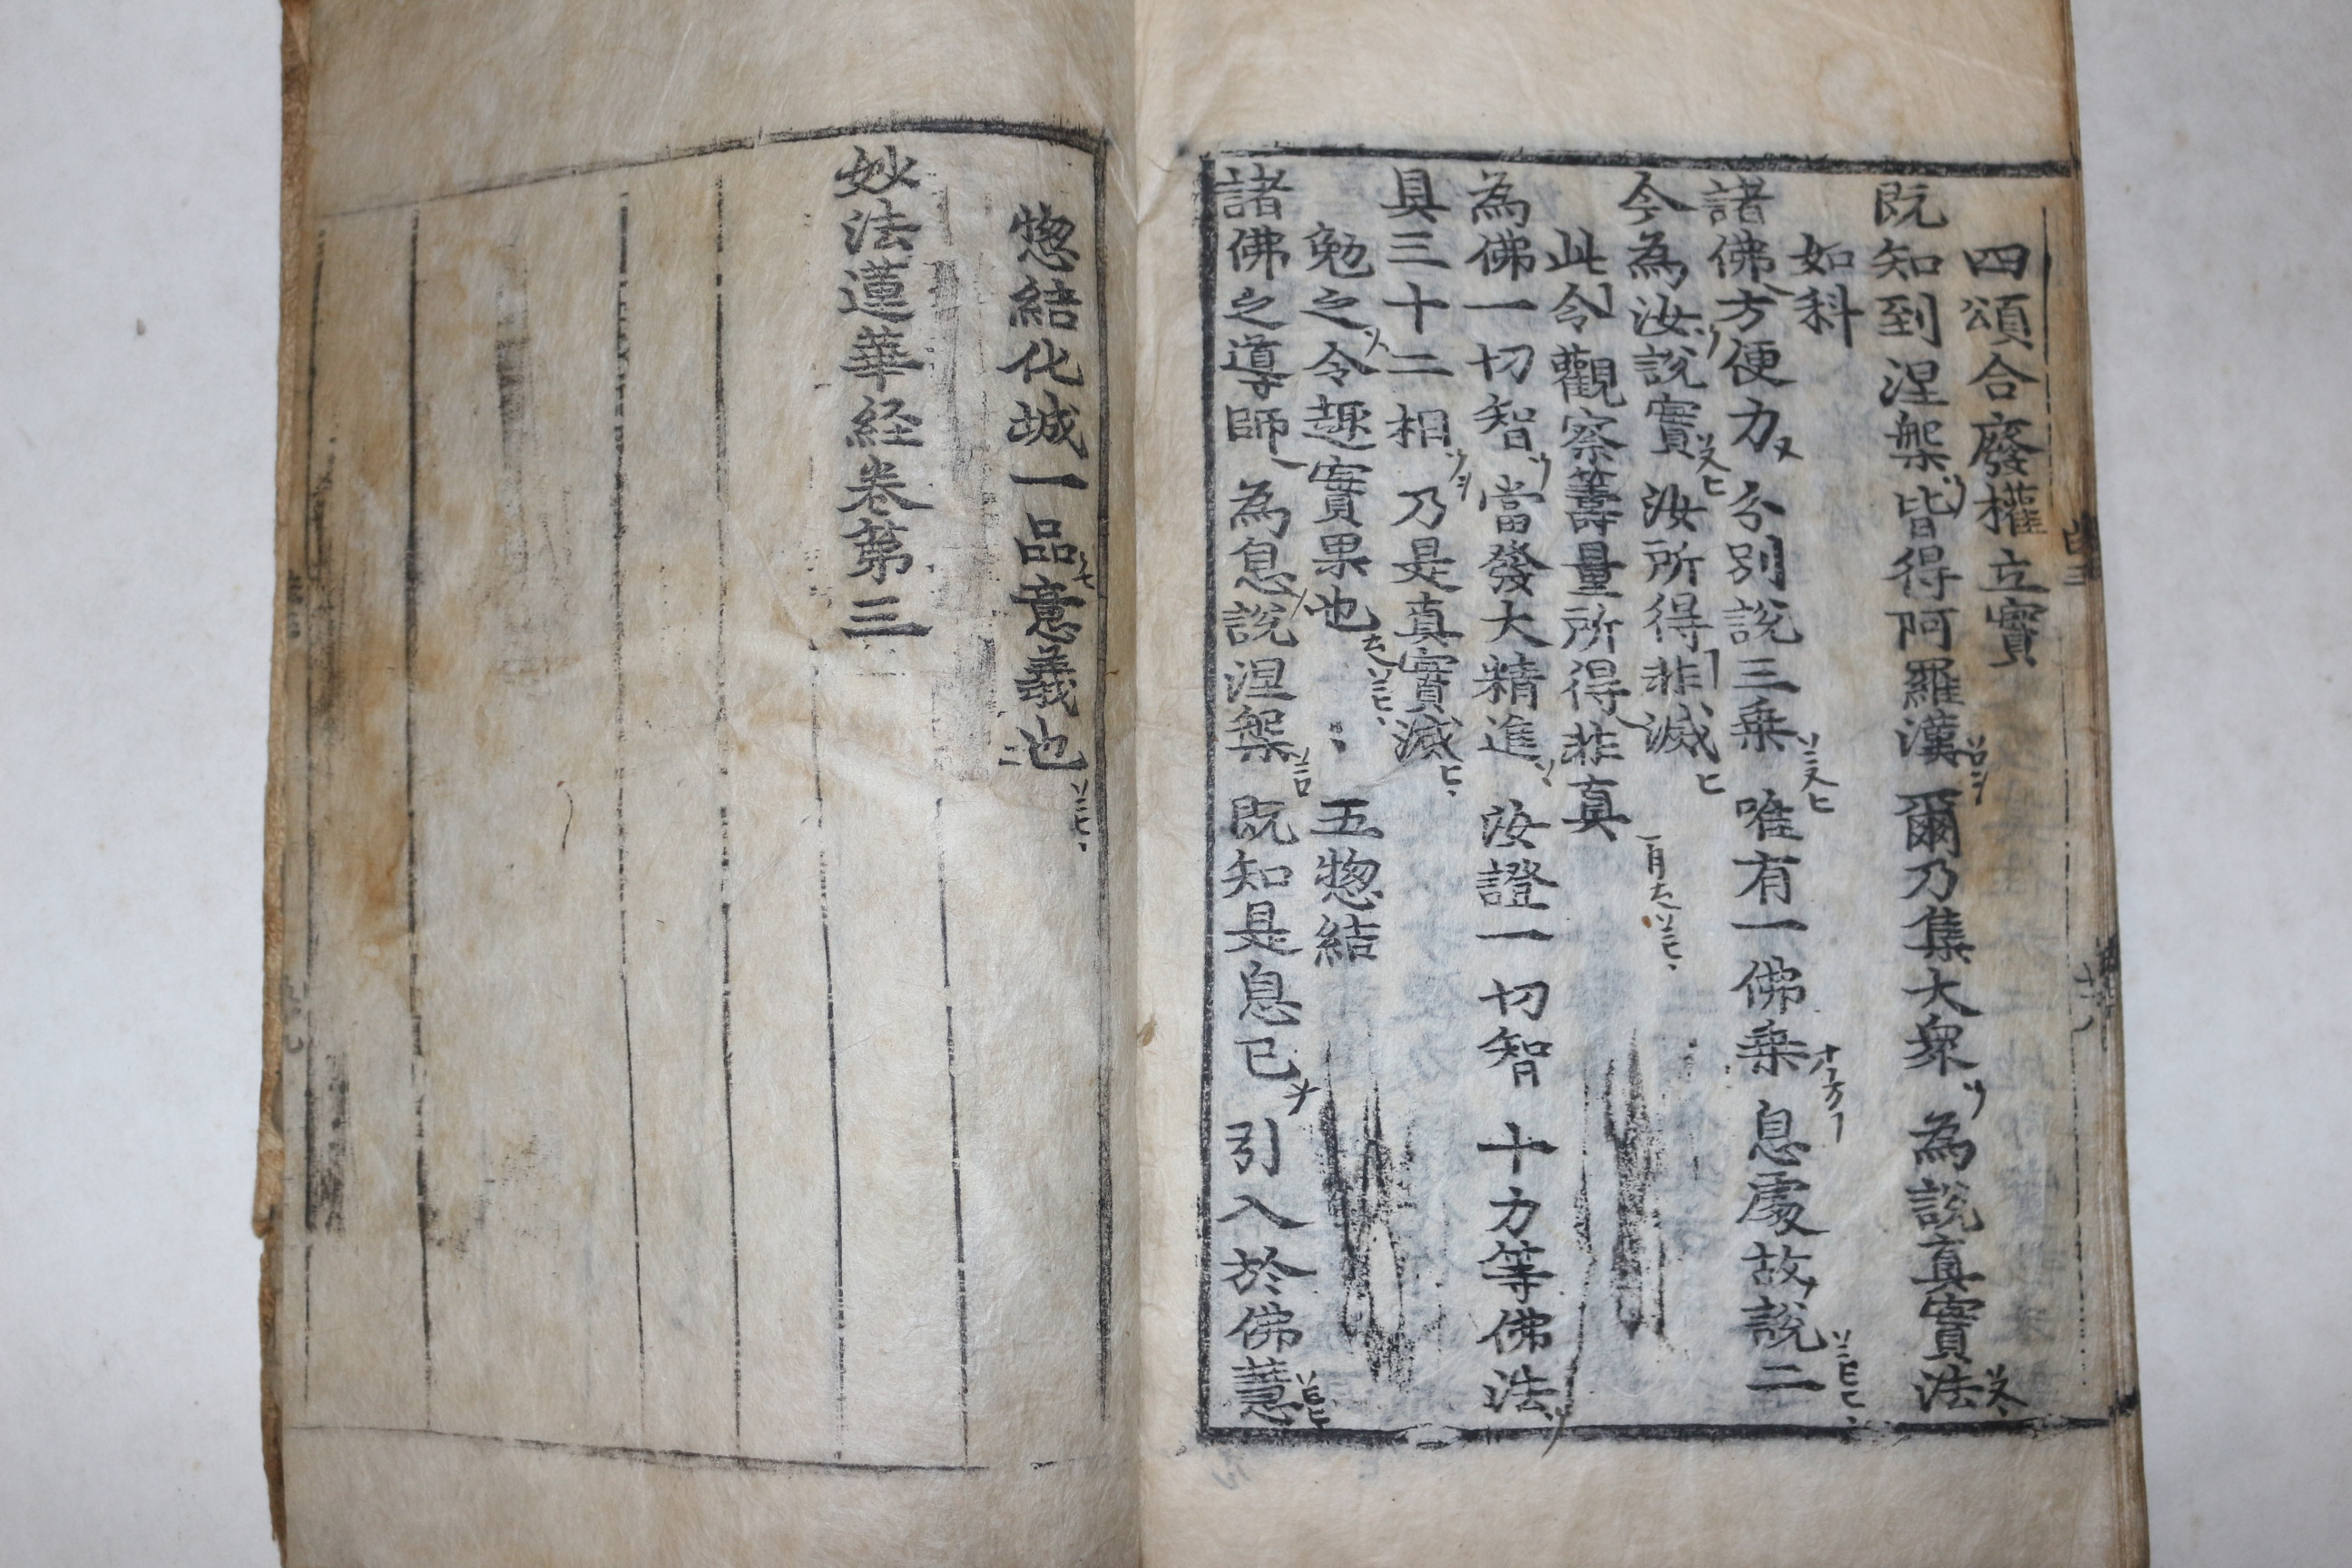 四頌合廢權立實
既知到涅槃 皆得阿羅漢 爾乃集大衆 為說真實法
如科
諸佛方便力 分別說三乗 唯有一佛乗 息處故說二
今為汝說實 汝所得非滅
此令觀察籌量所得非真
為佛一切智 當發大精進 汝證一切智 十力等佛法
具三十二相 乃是真實滅
勉之令趣實果也 : 五惣結
諸佛之導師 為息說涅槃 既知是息已 引入於佛慧
惣結化城一品意義也
妙法蓮華経卷第三